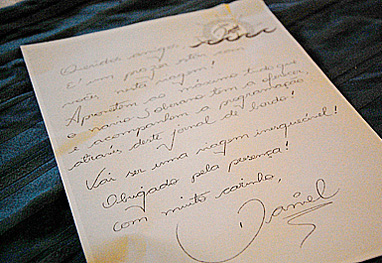 Queridos amigos,
É um prazer estar com
vocês nesta viagem!
Aproveitem ao máximo tudo que
o navio Soberano tem a oferecer,
e acompanhem a programação
através deste jornal de bordo!
Vai ser uma viagem inesquecível!
Obrigado pela presença!
Com muito carinho,
Daniel